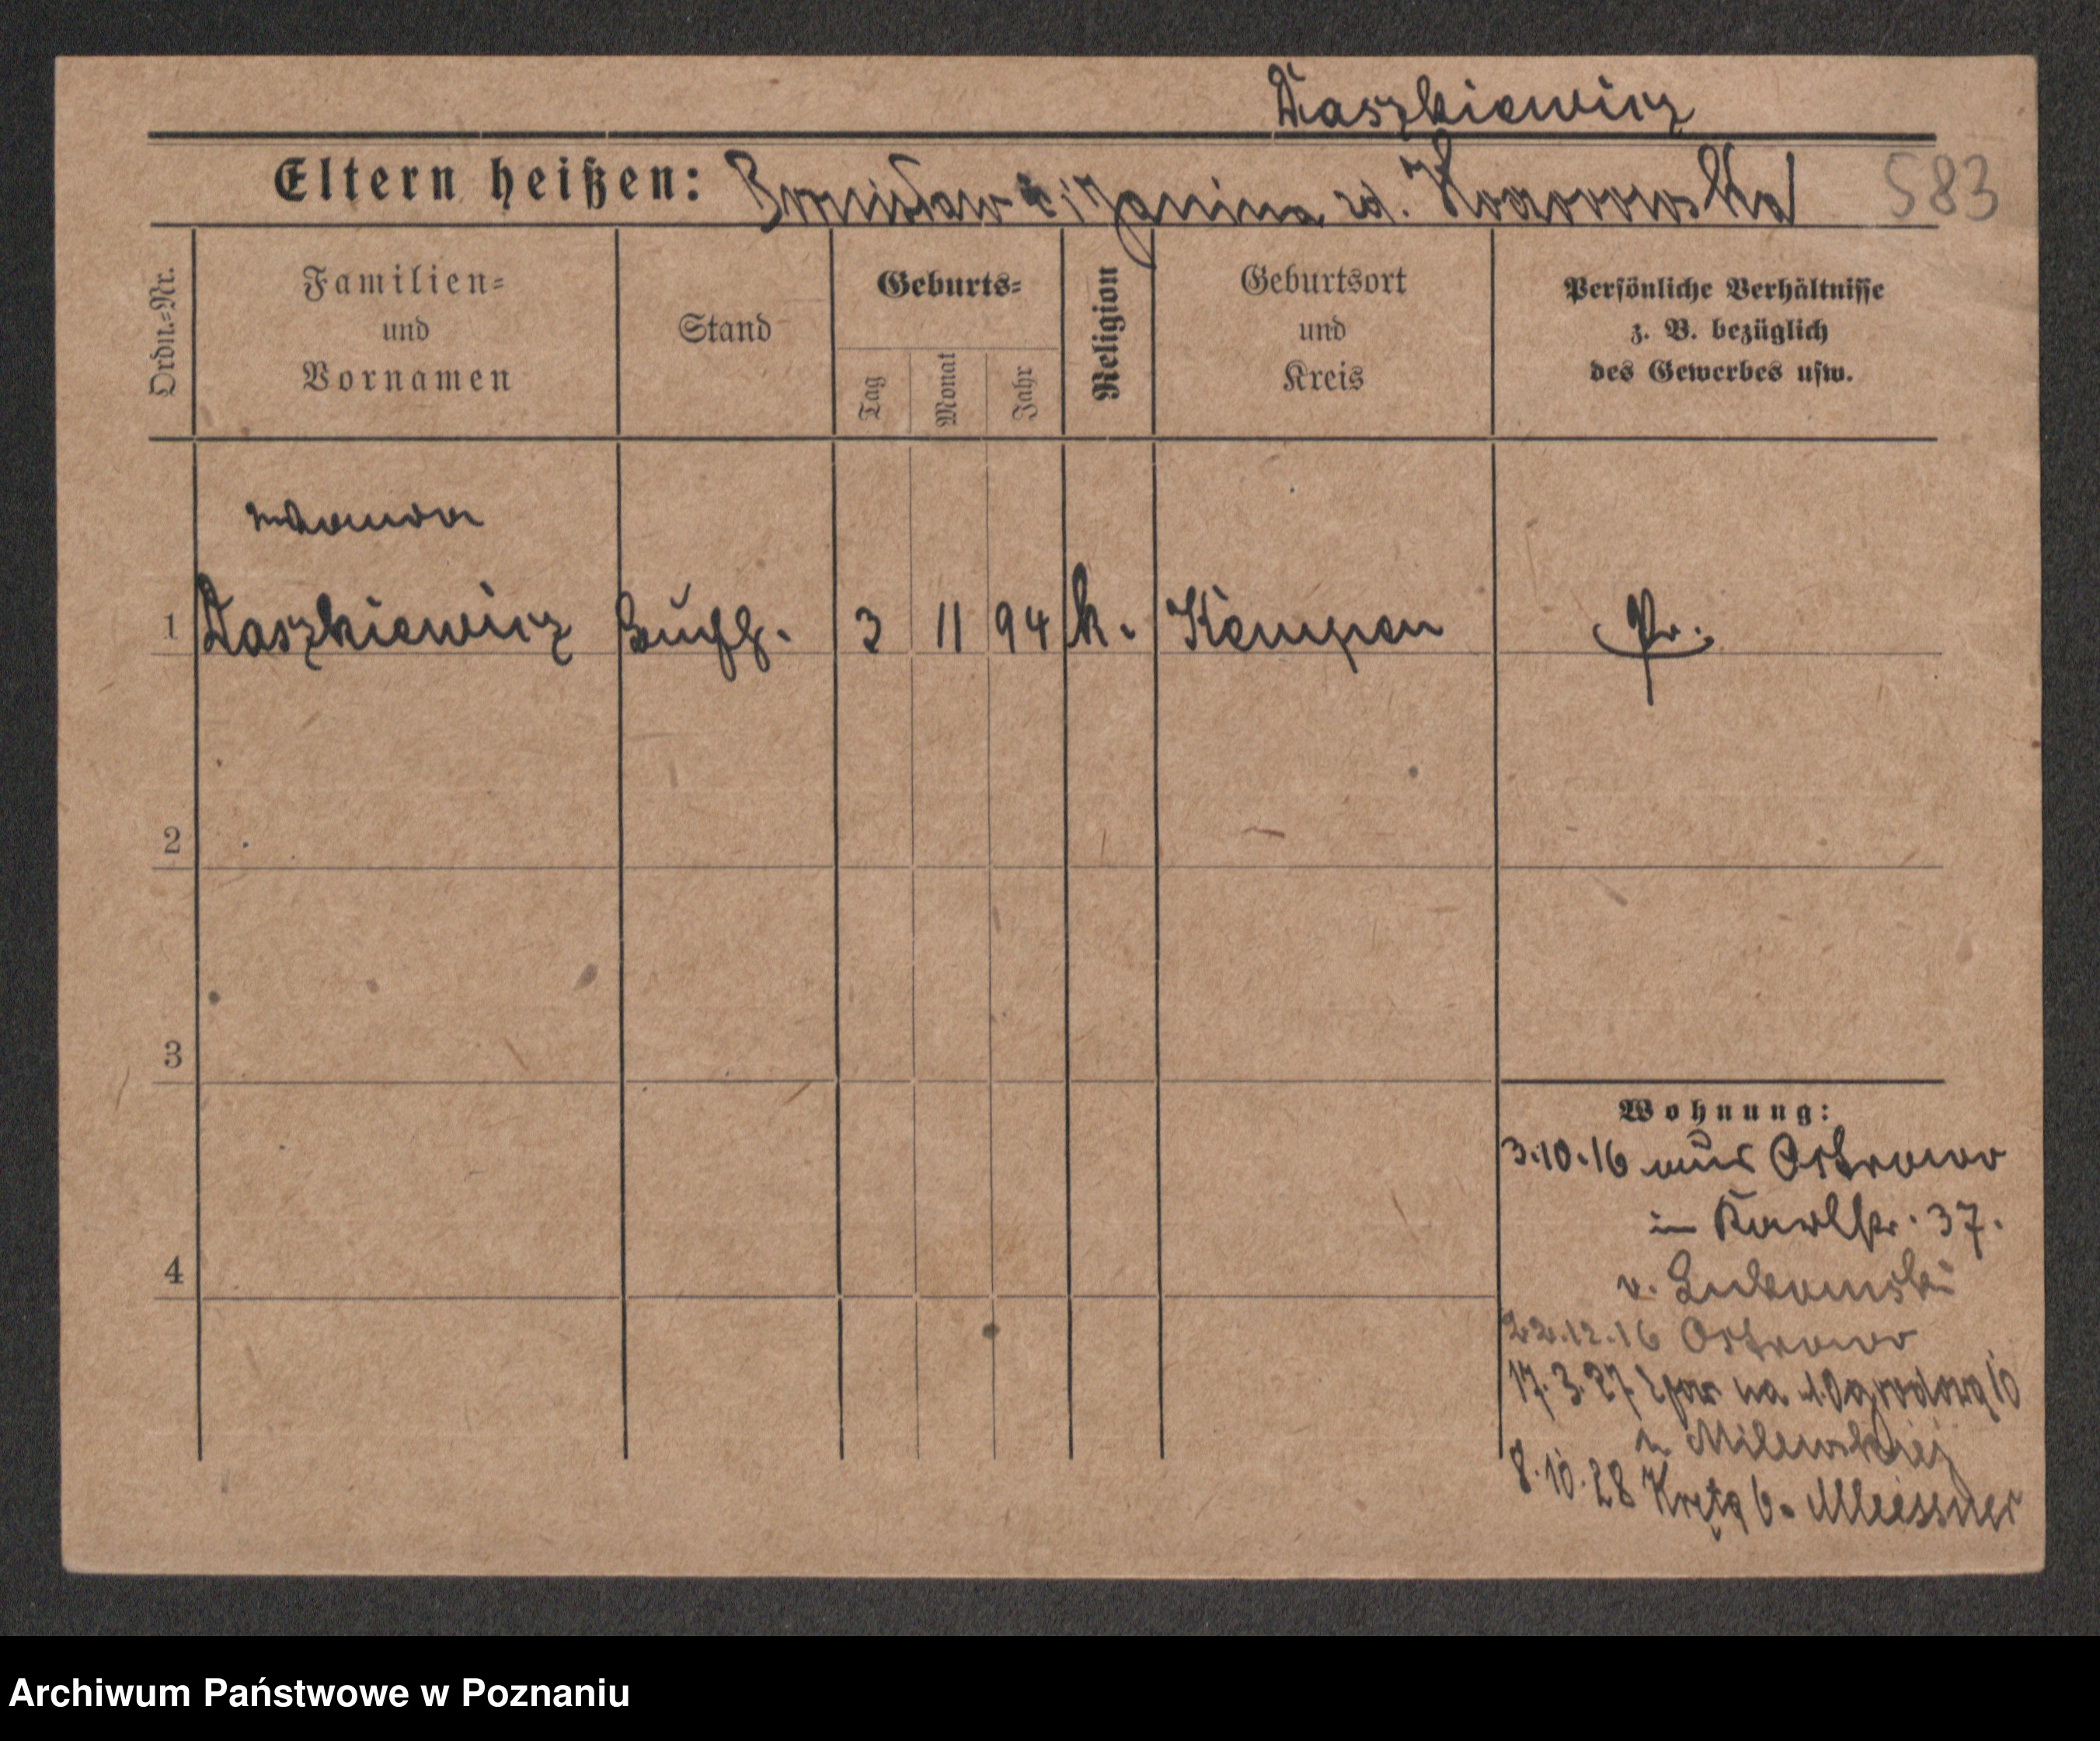 Daszkiewicz
Eltern heißen: Bronisław i Janina zd.
583
Ordn.-Nr.
Familien-
und
Vornamen
Stand
Geburts-
Tag
Monat
Jahr
Religion
Geburtsort
und
Kreis
Persönliche Verhältnisse
z. B. bezüglich
des Gewerbes usw.
1 Daszkiewicz Buchh. 3 11 94 k. Kempen Pr.
2
3
4
Wohnung:
3.10.16 aus Ostrowo
in Karlstr. 37.
v. Lukomski
22.12.16 Ostrowo
17.3.27 na Ogrodową 10
Milewskiej
8.10.28 Kręta 6. Meissner
Archiwum Państwowe w Poznaniu